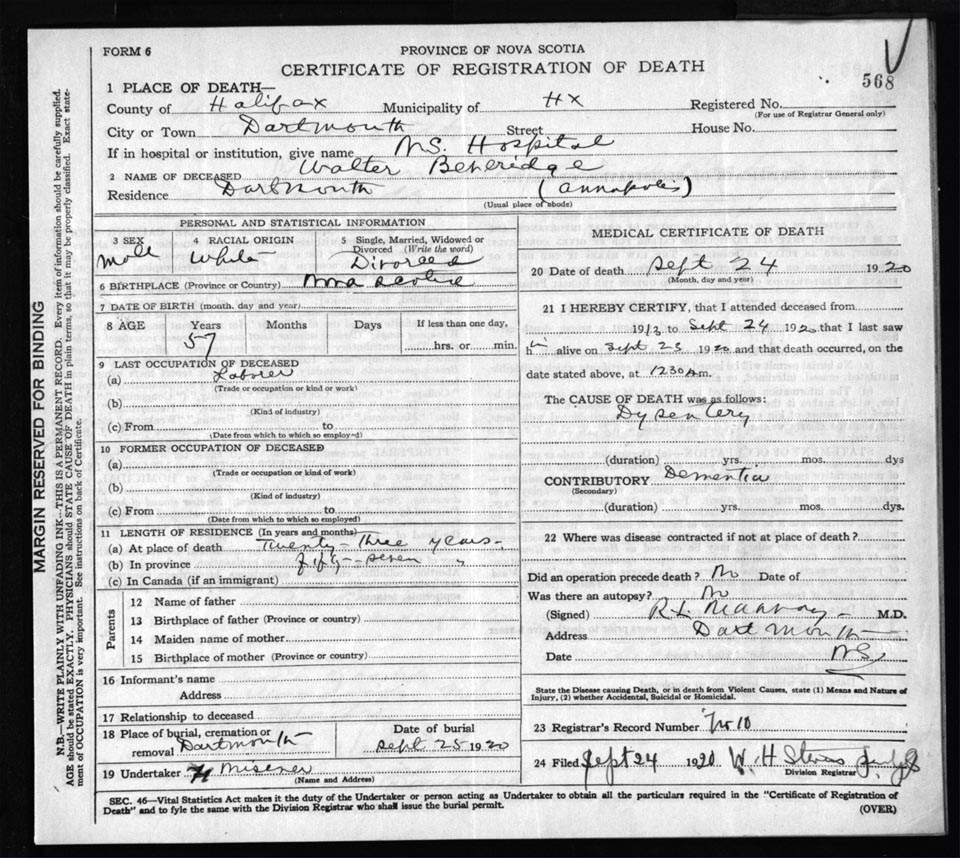 FORM 6
PROVINCE OF NOVA SCOTIA
CERTIFICATE OF REGISTRATION OF DEATH
568
1 PLACE OF DEATH—
County of Halifax Municipality of HX Registered No.
(For use of Registrar General only)
City or Town Dartmouth Street House No.
If in hospital or institution, give name NS. Hospital
2 NAME OF DECEASED Walter Beveridge
Residence Dartmouth (Annapolis)
(Usual place of abode)
PERSONAL AND STATISTICAL INFORMATION
3 SEX 4 RACIAL ORIGIN 5 Single, Married, Widowed or Divorced (Write the word)
Male White Divorced
6 BIRTHPLACE (Province or Country) Nova Scotia
7 DATE OF BIRTH (month, day and year)
8 AGE Years Months Days If less than one day,
57 hrs. or min.
9 LAST OCCUPATION OF DECEASED
(a) Laborer
(Trade or occupation or kind or work)
(b)
(Kind of industry)
(c) From to
(Date from which to which so employed)
10 FORMER OCCUPATION OF DECEASED
(a)
(Trade or occupation or kind of work)
(b)
(Kind of industry)
(c) From to
(Date from which to which so employed)
11 LENGTH OF RESIDENCE (In years and months)
(a) At place of death Twenty-Three years
(b) In province fifty-seven "
(c) In Canada (if an immigrant)
Parents
12 Name of father
13 Birthplace of father (Province or country)
14 Maiden name of mother
15 Birthplace of mother (Province or country)
16 Informant's name
Address
17 Relationship to deceased
18 Place of burial, cremation or removal Dartmouth
Date of burial
Sept 25 1920
19 Undertaker Misener
(Name and Address)
MEDICAL CERTIFICATE OF DEATH
20 Date of death Sept 24 1920
(Month, day and year)
21 I HEREBY CERTIFY, that I attended deceased from
1913 to Sept 24 1920 that I last saw
h alive on Sept 23 1920 and that death occurred, on the
date stated above, at 1230 A m.
The CAUSE OF DEATH was as follows:
Dysentery
(duration) yrs. mos. dys
CONTRIBUTORY Dementia
(Secondary)
(duration) yrs. mos. dys.
22 Where was disease contracted if not at place of death?
Did an operation precede death? No Date of
Was there an autopsy? No
(Signed) R. L. M.D.
Address Dartmouth
Date NS
State the Disease causing Death, or in death from Violent Causes, state (1) Means and Nature of
Injury, (2) whether Accidental, Suicidal or Homicidal.
23 Registrar's Record Number
24 Filed Sept 24 1920 W. H
Division Registrar
SEC. 46—Vital Statistics Act makes it the duty of the Undertaker or person acting as Undertaker to obtain all the particulars required in the "Certificate of Registration of
Death" and to fyle the same with the Division Registrar who shall issue the burial permit.
(OVER)
MARGIN RESERVED FOR BINDING
N.B.—WRITE PLAINLY WITH UNFADING INK—THIS IS A PERMANENT RECORD. Every item of information should be carefully supplied.
AGE should be stated EXACTLY. PHYSICIANS should STATE CAUSE OF DEATH in plain terms, so that it may be properly classified. Exact state-
ment of OCCUPATION is very important. See instructions on back of Certificate.